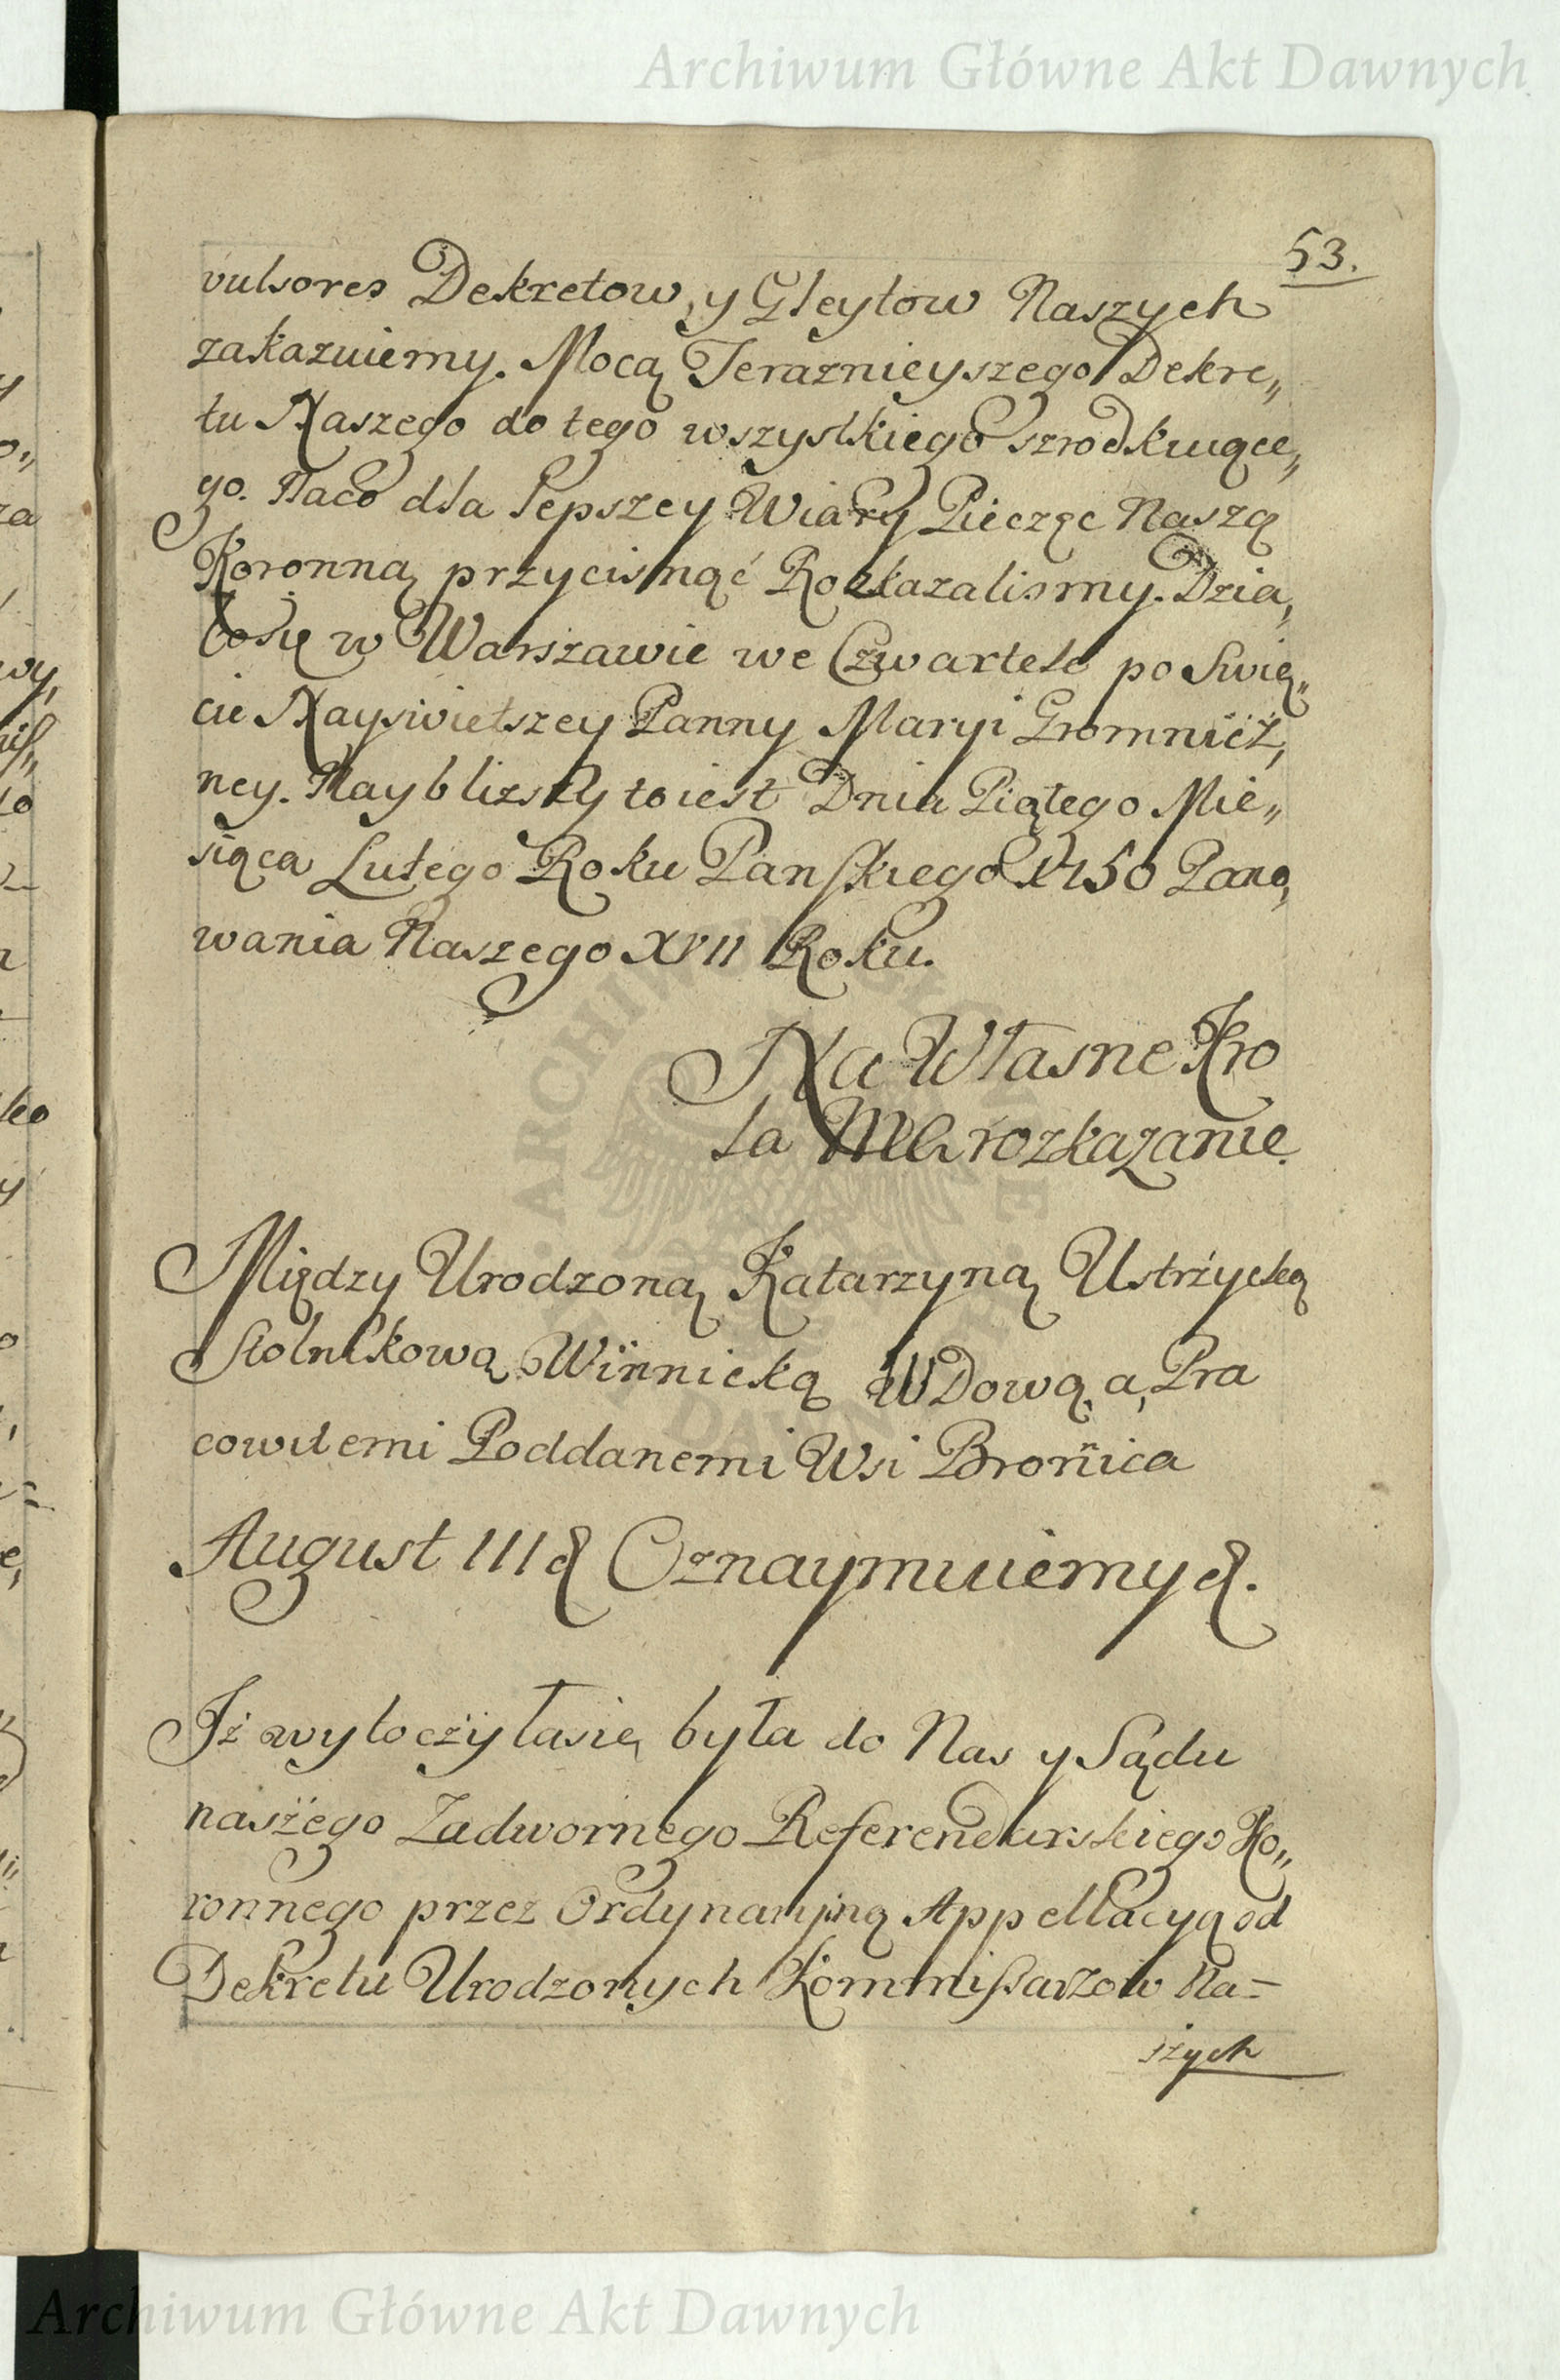 Archiwum Główne Akt Dawnych
53.
vulsores Dekretow, y Gleytow Naszych
zakazuiemy. Mocą Teraznieyszego Dekre„
tu Naszego do tego wszystkiego szrodkuiące„
go. Naco dla lepszey Wiary Pieczęc Naszą
Koronną przycisnąć Rozkazalismy. Dzia„
łosię w Warszawie we Czwartek po Swię„
cie Nayswietszey Panny Maryi Gromnicż„
ney. Nayblizszy to iest Dnia Piątego Mie„
siąca Lutego Roku Panskiego 1750 Pano„
wania Naszego XVII Roku.
Na Własne Kro
la rozkazanie.
Między Urodzoną Katarzyną Ustrżycką
Stolnikową Winnicką Wdową, a, Pra
cowitemi Poddanemi Wsi Bronica
August III & Oznaymuiemy &.
Iż wytoczyłasię była do Nas y Sądu
naszego Zadwornego Referendarskiego Ko„
ronnego przez Ordynaryiną Appellacyą od
Dekretu Urodzonych Kommissarzow Na=
szych
Archiwum Główne Akt Dawnych